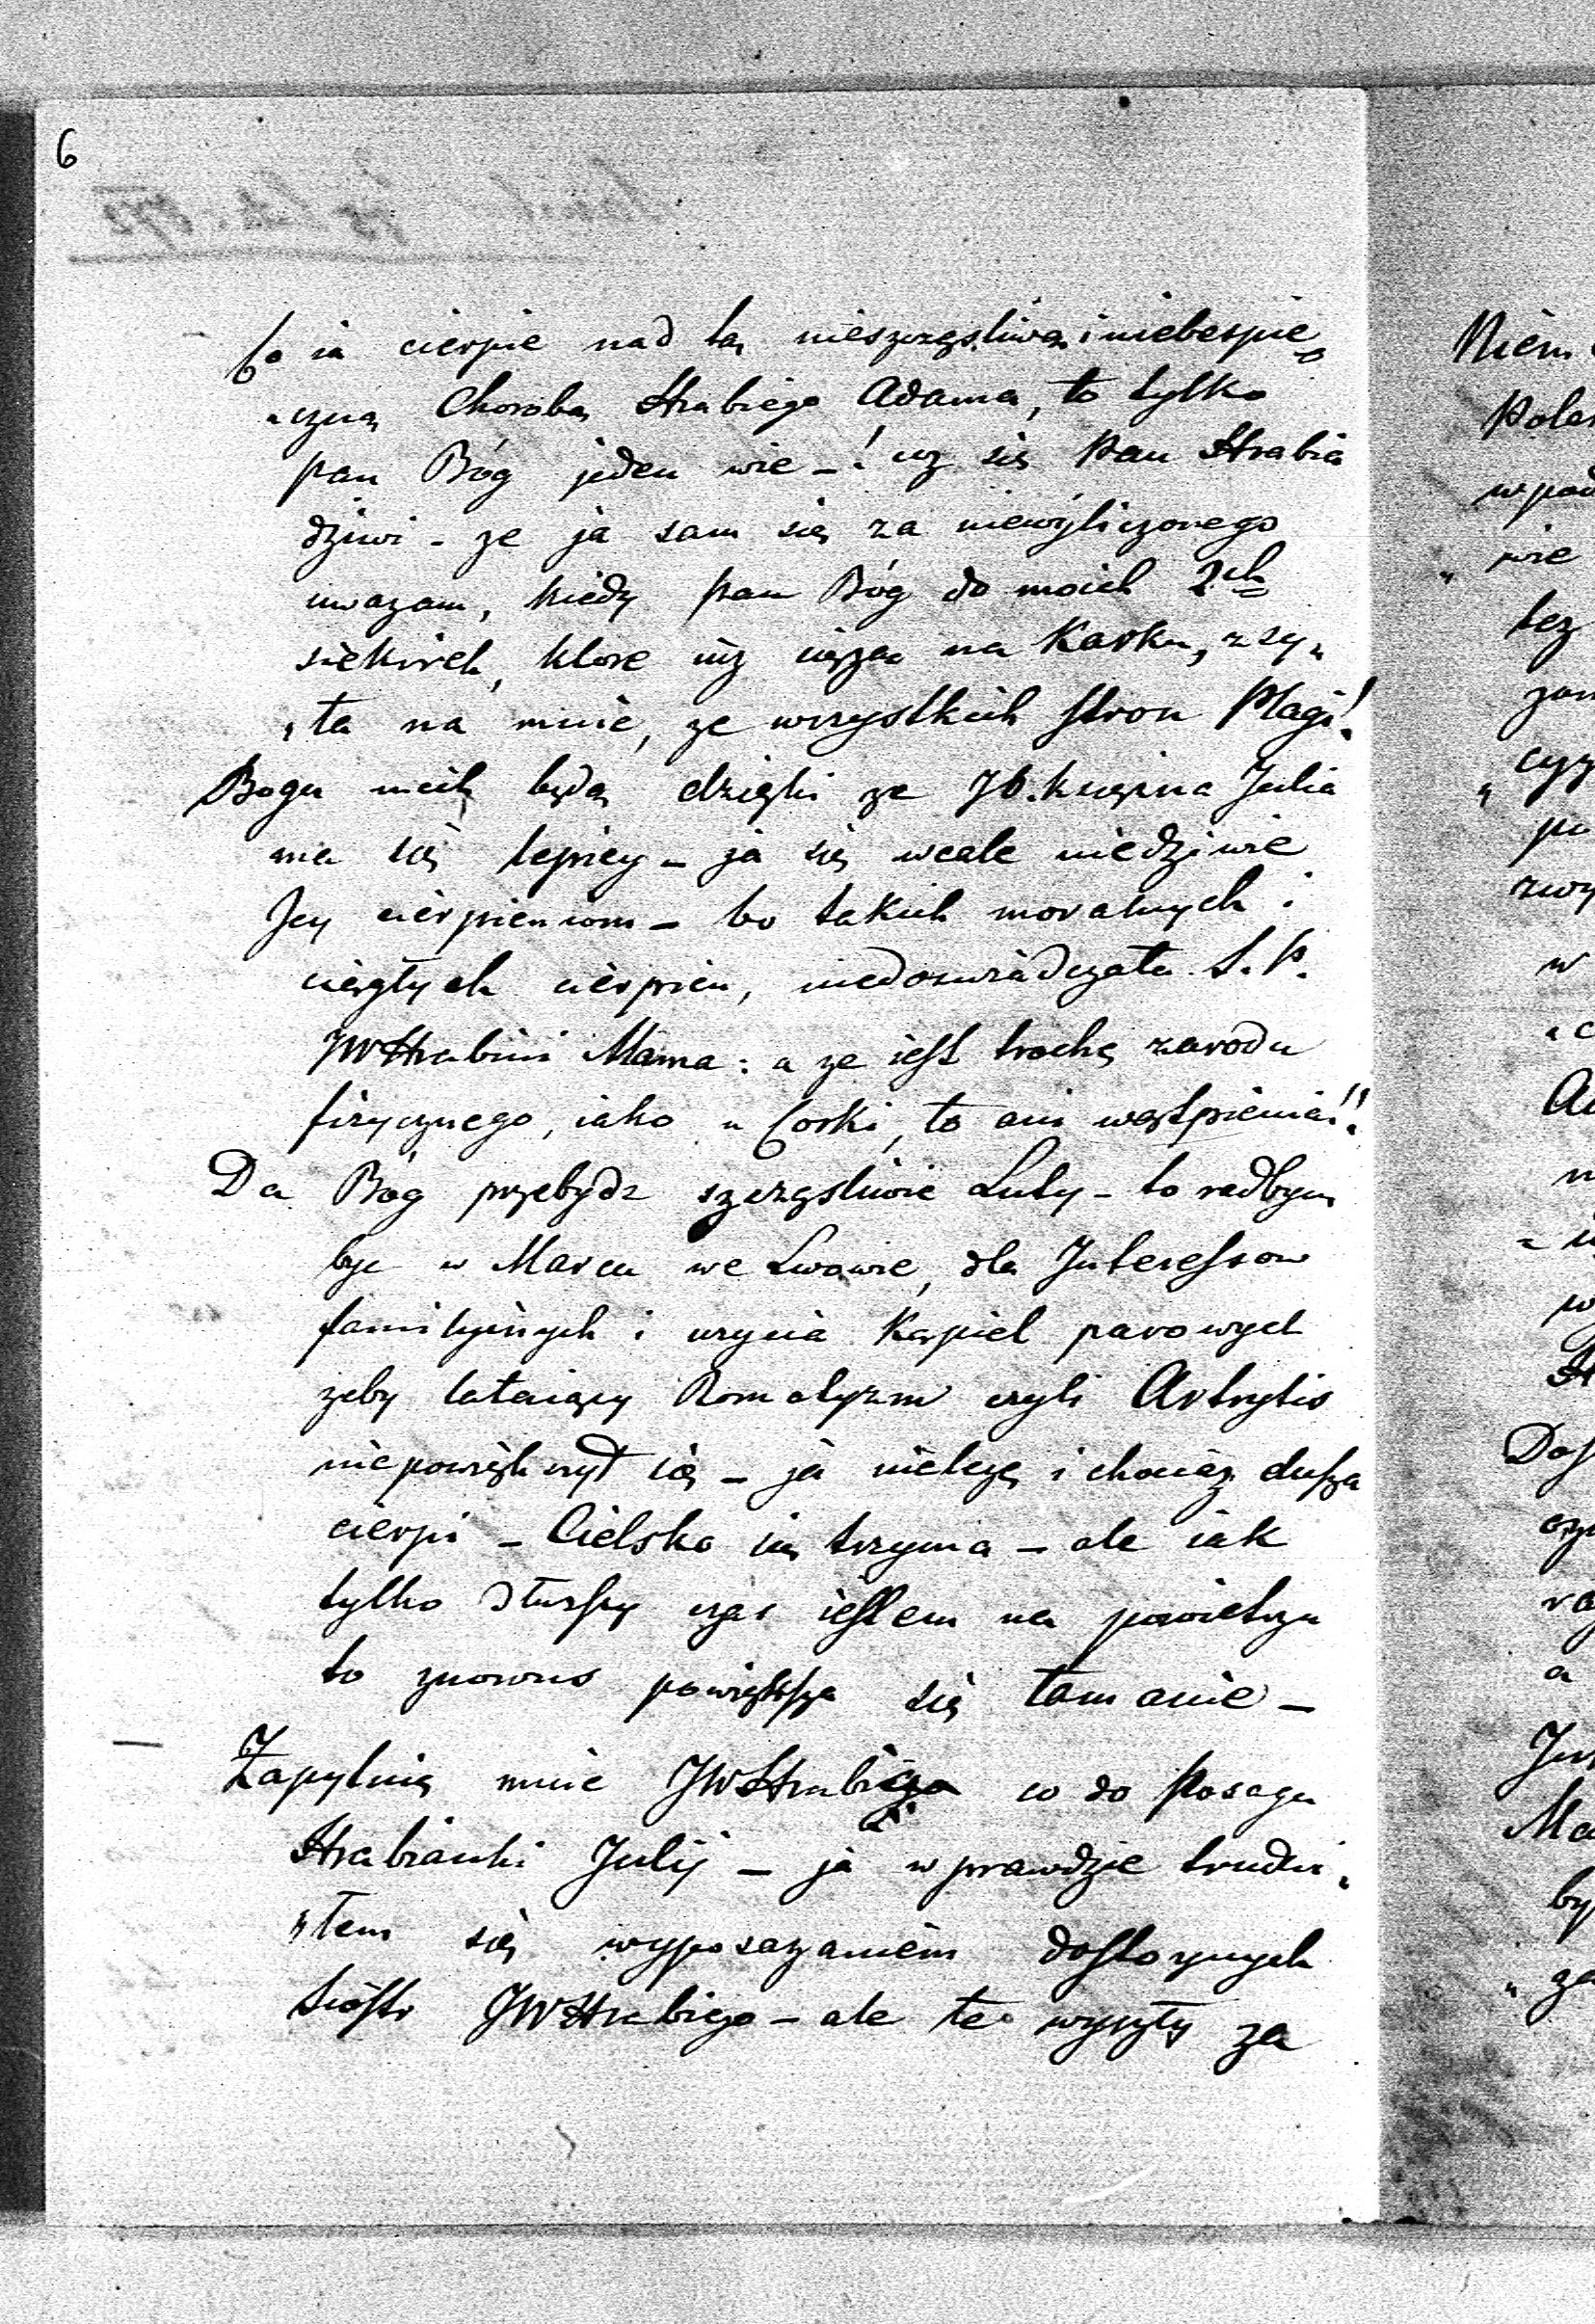 6
Co ia cierpie nad tą nieszczęsliwą i niebespie„
„czną Chorobą Hrabiego Adama, to tylko
pan Bóg jeden wie –! cz się Pan Hrabia
dziwi – ze ja sam się za niewyliczonego
uwazam, kiedy pan Bóg do moich 2ch
siekirek, ktore iuz ciązą na Karku, zsy„
„ła na mnie, ze wszystkich stron Plagi!
Bogu niech będą dzięki ze JO. księzna Julia
ma się lepiey – ja się wcale niedziwie
Jey cierpieniom – bo takich moralnych i
ciągłych cierpien, niedoswiadczała S. P.
JWHrabini Mama: a ze iest trochę zarodu
fizycznego, iako u Corki, to ani wątpienia!!
Da Bóg przebydz szczęsliwie Luty – to radbym
byc w Marcu we Lwowie, dla Interessow
familyinych i uzycia Kąpiel parowych
zeby lataiący Romatyzm czyli Artrytis
niepowiększył się – ja nielezę i chociaz dusza
cierpi – Cielsko się trzyma – ale iak
tylko dłuzszy czas iestem na powietrzu
to znowus powiększa się łamanie –
Zapytuią mnie JWHrabiego co do Posagu
Hrabianki Julij – ja wprawdzie trudni„
„łem się wyposazaniem dostoynych
Siostr JWHrabiego – ale te wyszły za
Niem
wpad
wie
tez
zan
cyz
po
zwy
w
Da
a
Ma
by